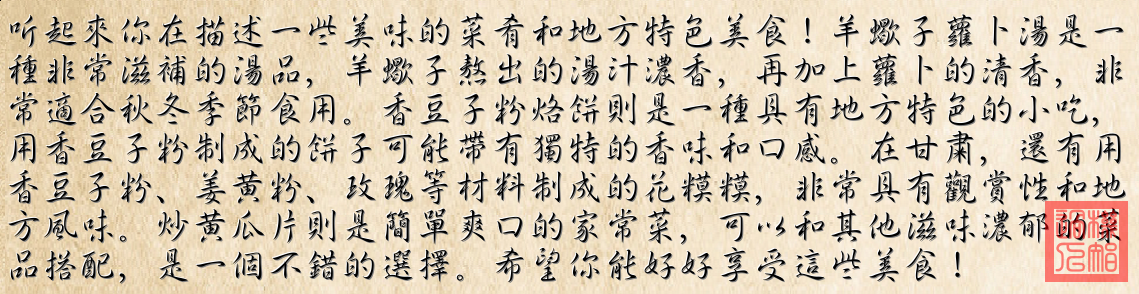 听起來你在描述一些美味的菜肴和地方特色美食！羊蠍子蘿卜湯是一
種非常滋補的湯品，羊蠍子熬出的湯汁濃香，再加上蘿卜的清香，非
常適合秋冬季節食用。香豆子粉烙餅則是一種具有地方特色的小吃，
用香豆子粉制成的餅子可能帶有獨特的香味和口感。在甘肅，還有用
香豆子粉、姜黄粉、玫瑰等材料制成的花糢糢，非常具有觀賞性和地
方風味。炒黄瓜片則是簡單爽口的家常菜，可以和其他滋味濃郁的菜
品搭配，是一個不錯的選擇。希望你能好好享受這些美食！